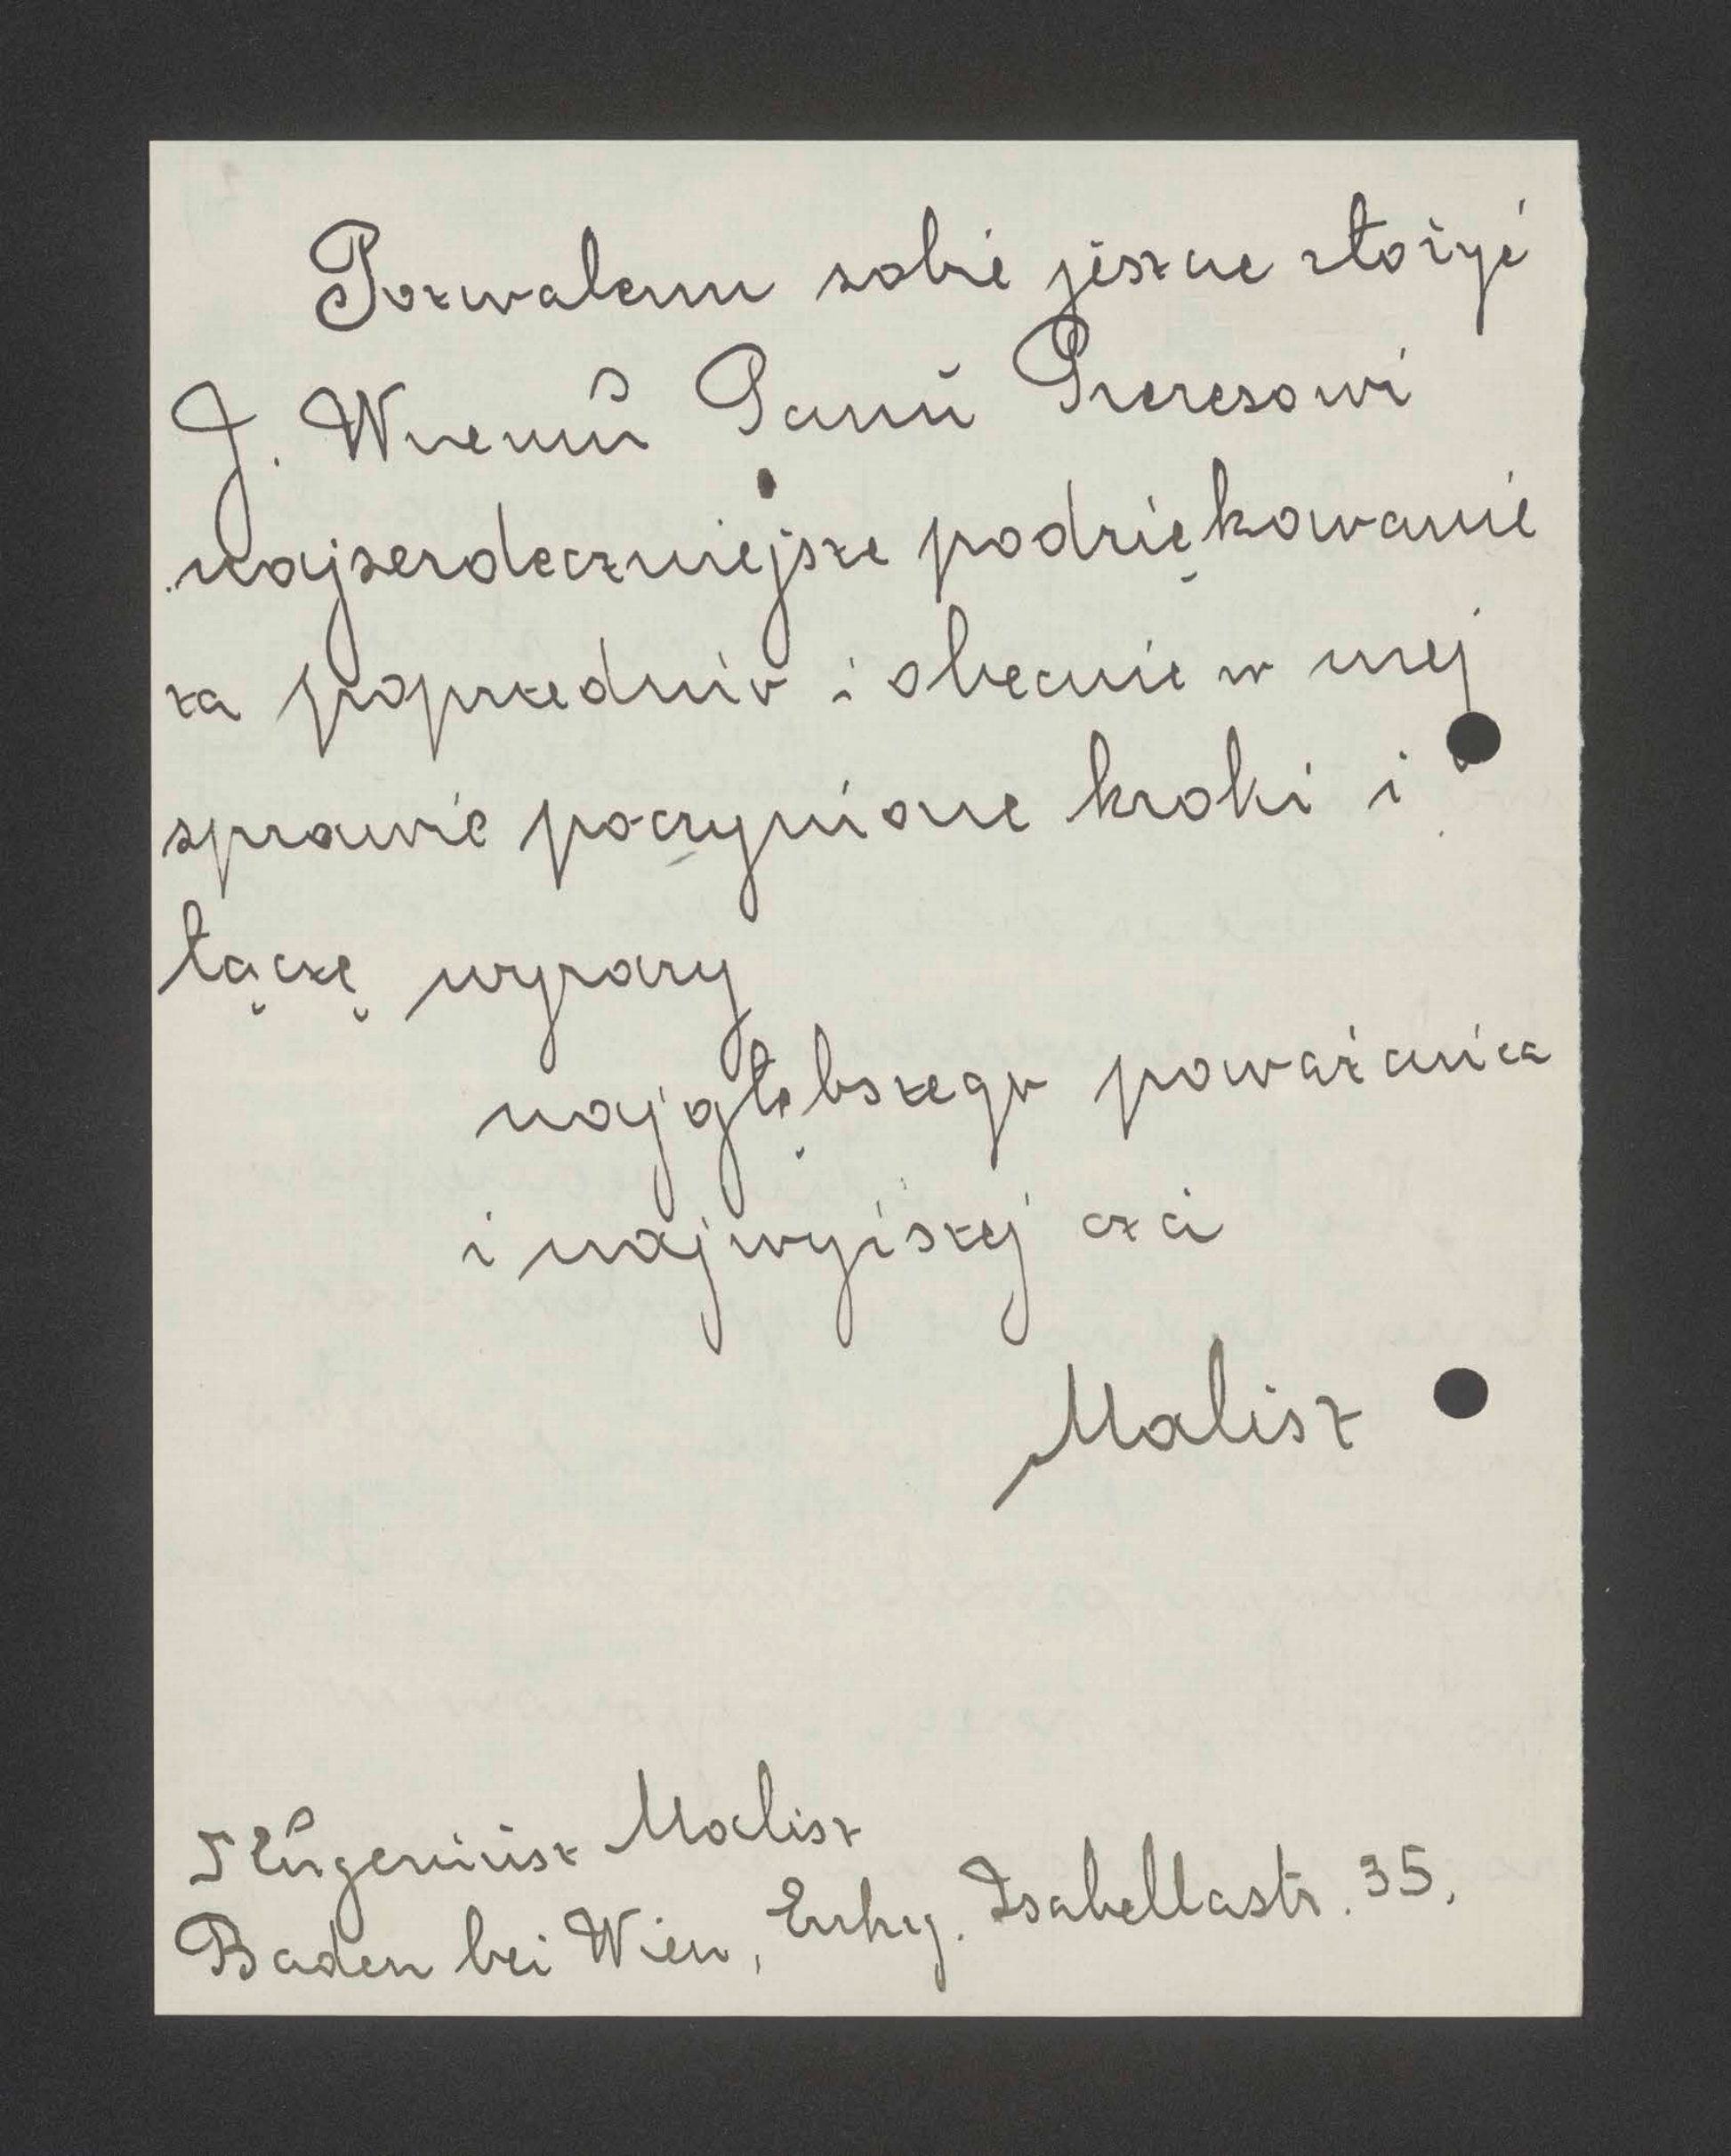 Pozwalam sobie jeszcze złożyć
J. Wnemu Panu Prezesowi
najserdeczniejsze podziękowanie
za poprzednio i obecnie w mej
sprawie poczynione kroki i
łączę wyrazy
najgłębszego poważania
i najwyższej czci
Malisz
Eugeniusz Malisz
Baden bei Wien, Erzhg. Isabellastr. 35.